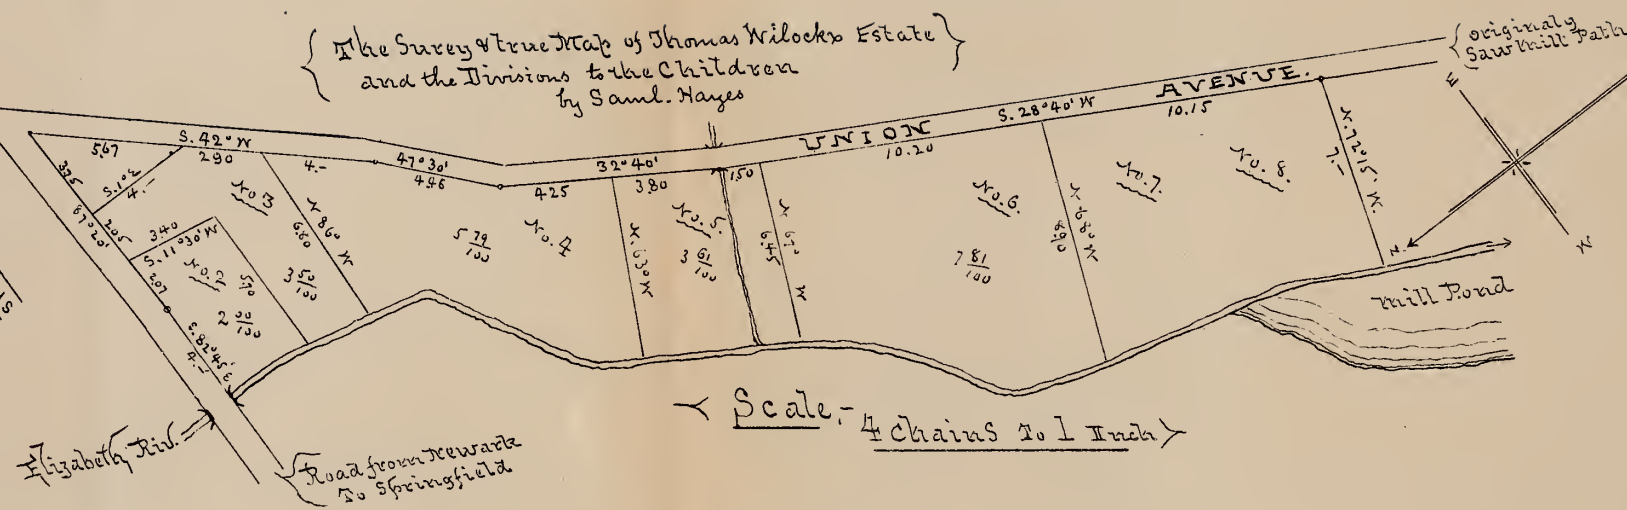 The Surey & true Map of Thomas Wilocks Estate
and the Divisions to the Children
by Saml. Hayes
originaly
Sawmill Path
UNION AVENUE.
S. 42° W
5.67
2.90
4.-
47°30'
4.46
32°40'
4.25
3.80
1.50
10.20
S. 28°40' W
10.15
3.35
S. 1° E
4.-
67°20'
2.05
3.40
S. 11°30' W
2.07
No. 2
5.70
2 00/100
S. 82°45' E
4.-
No. 3
6.60
3 50/100
N 86° W
5 79/100
No. 4
N. 63° W
No. 5.
3 61/100
N 67° W
6.45
No. 6.
7 81/100
N 68° W
8.90
No. 7.
No. 8.
N. 72°15' W.
7.-
E
N
W
Mill Pond
Scale,- 4 Chains To 1 Inch
Elizabeth Riv.
Road from Newark
To Springfield